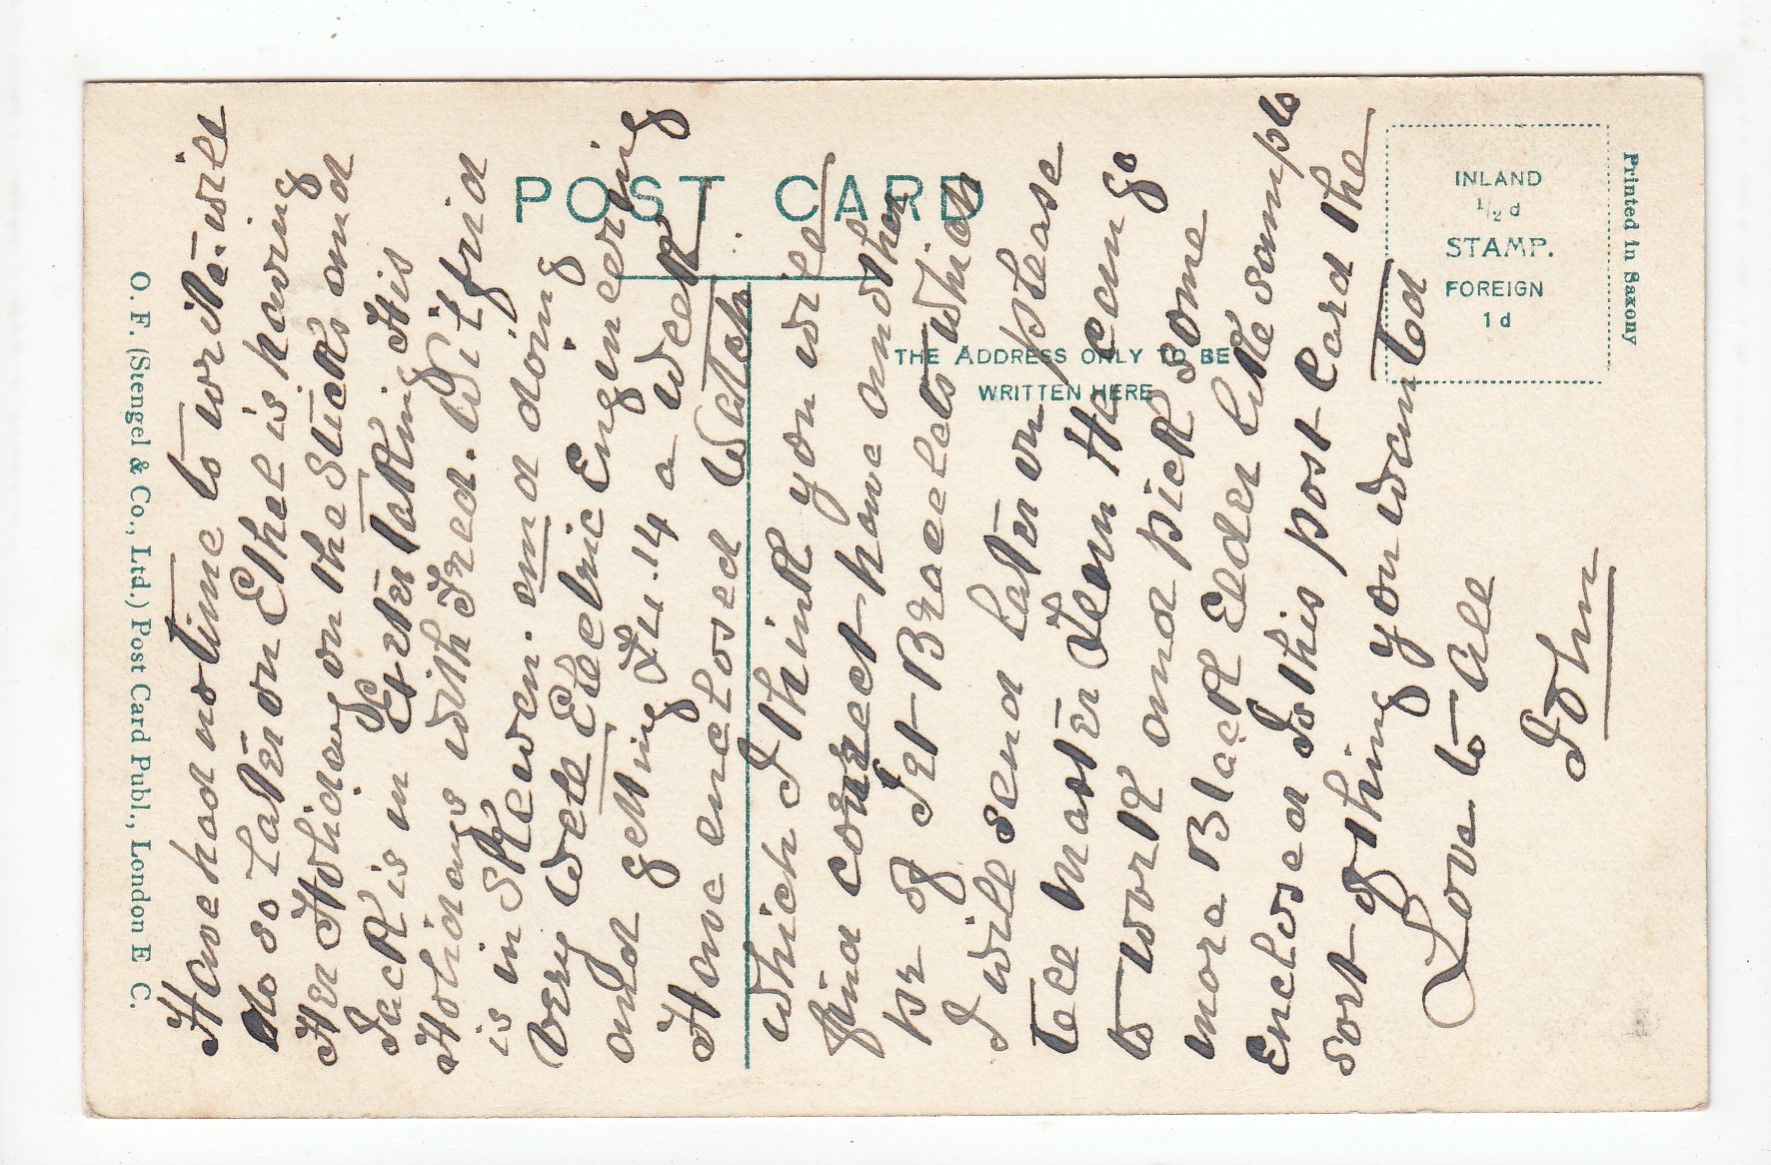 POST CARD
THE ADDRESS ONLY TO BE
WRITTEN HERE
INLAND
1/2 d
STAMP.
FOREIGN
1 d
Printed in Saxony
O. F. (Stengel & Co., Ltd.) Post Card Publ., London E C.
Have had no time to write. will
do so later on Ethel is having
Her Holiday on the Sticks and
Jack is in Exeter taking His
Holidays with Fred. Wilfrid
is in Skewen. and doing
very well Electric Engineering
and getting £4.14 a week
Have enclosed Watch
which I think you will
find correct have another
pr of Jet Bracelets which
I will send later on please
tell Master Leon He can go
to work and pick some
more Black Elder like sample
Enclosed Is this post Card the
sort of thing you wanted
Love to All
John